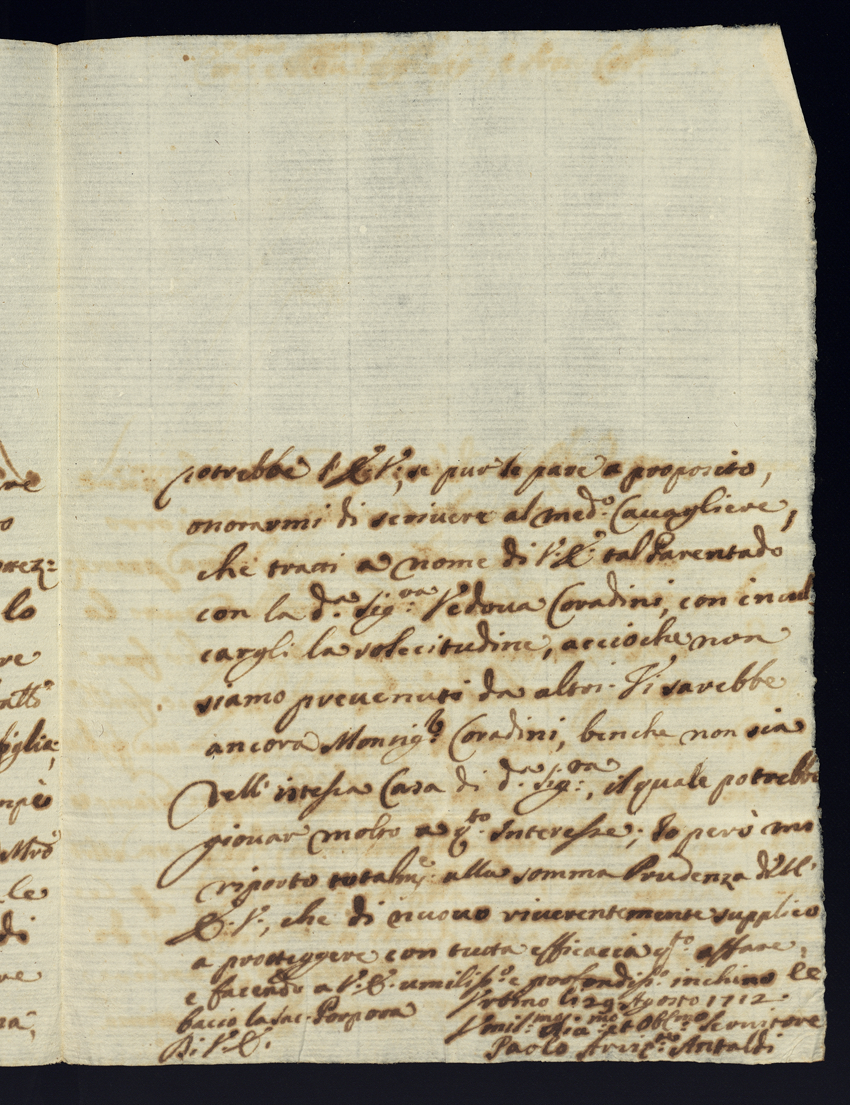 potrebbe V.E.V., se pur le pare a proposito,
onorarmi di scrivere al med.º Cavagliere,
che tratti a nome di V.E. tal Parentado
con la d.ª Sig.ra Vedova Coradini, con incul=
cargli la solecitudine, accioche non
siamo prevenuti da altri. Vi sarebbe
ancora Monsig.r Coradini, benche non sia
dell' istessa Casa di d.ª Sig.ra, il quale potrebbe
giovar molto a q.to Interesse; Io però mi
riporto totalm.e alla somma Prudenza dell'
E.V., che di nuovo riverentemente supplico
a proteggere con tutta efficacia q.to affare,
e facendo a V.E. umiliss.º e profondiss.º inchino le
bacio la Sac. Porpora
Di V.E.
Urbino li 29 Agosto 1712
Umil.mo et Obl.mo Servitore
Paolo Antaldi
ore
o
prez=
lo
re
fatto
biglia=
Mro
le
di
re